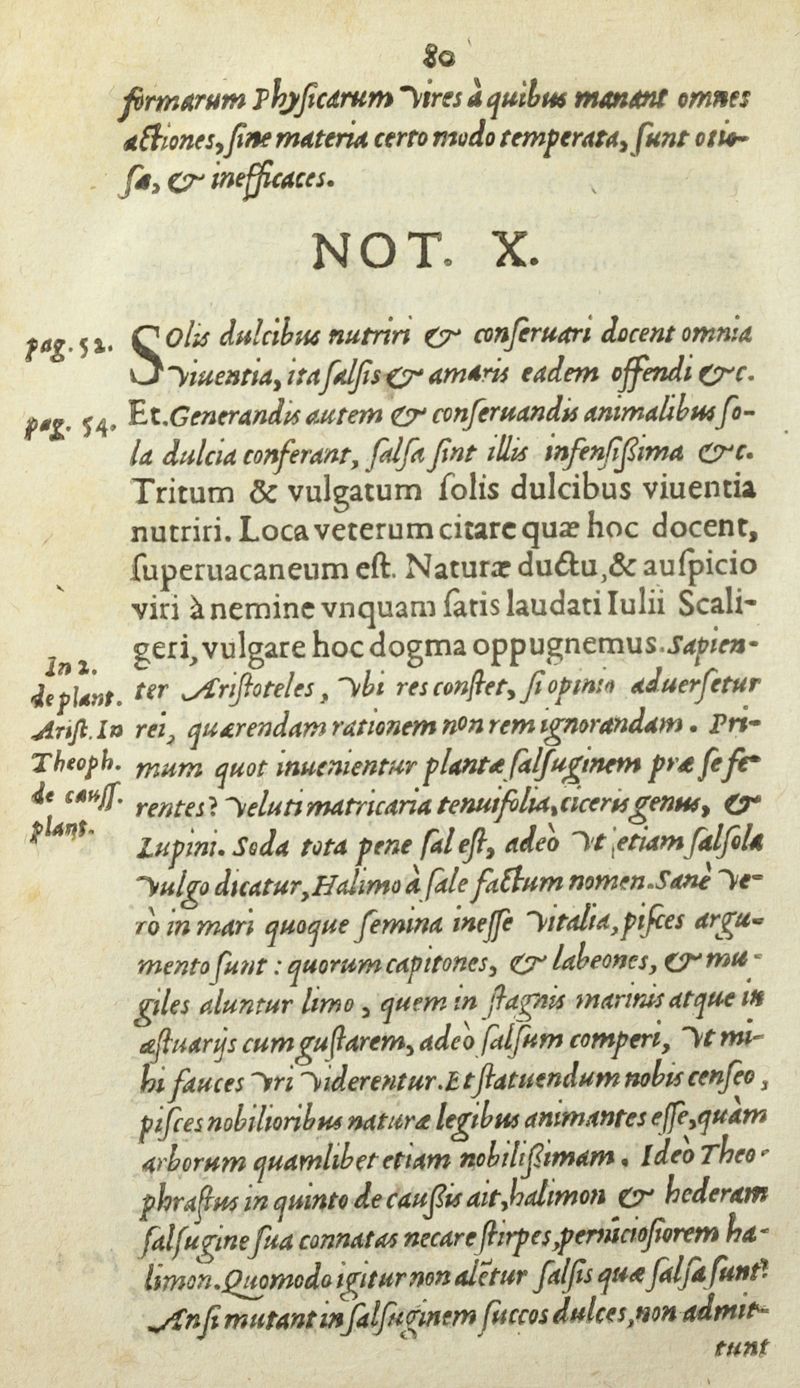 80
formarum Phyſicarum vires à quibus manant omnes
actiones, ſine materia certo modo temperata, ſunt otio-
ſa, & inefficaces.
NOT. X.
pag. 52.
SOlis dulcibus nutriri & conſeruari docent omnia
viuentia, ita ſalſis & amaris eadem offendi &c.
pag. 54.
Et. Generandis autem & conſeruandis animalibus ſo-
la dulcia conferant, ſalſa ſint illis infenſiſsima &c.
Tritum & vulgatum ſolis dulcibus viuentia
nutriri. Loca veterum citare quæ hoc docent,
ſuperuacaneum eſt. Naturæ ductu, & auſpicio
viri à nemine vnquam ſatis laudati Iulii Scali-
geri, vulgare hoc dogma oppugnemus. Sapien-
In 2.
de plant.
Ariſt. In
Theoph.
de cauſſ.
plant.
ter Ariſtoteles, vbi res conſtet, ſi opinio aduerſetur
rei, quærendam rationem non rem ignorandam. Pri-
mum quot inuenientur plantæ ſalſuginem præ ſe fe-
rentes? veluti matricaria tenuifolia, ciceris genus, &
Lupini. Soda tota pene ſal eſt, adeò vt etiam ſalſola
vulgo dicatur, Halimo à ſale factum nomen. Sanè ve-
rò in mari quoque ſemina ineſſe vitalia, piſces argu-
mento ſunt: quorum capitones, & labeones, & mu-
giles aluntur limo, quem in ſtagnis marinis atque in
æſtuarijs cum guſtarem, adeò ſalſum comperi, vt mi-
hi fauces vri viderentur. Et ſtatuendum nobis cenſeo,
piſces nobilioribus naturæ legibus animantes eſſe, quàm
arborum quamlibet etiam nobiliſsimam. Ideò Theo-
phraſtus in quinto de cauſsis ait, halimon & hederam
ſalſugine ſua connatas necare ſtirpes, pernicioſiorem ha-
limon. Quomodo igitur non alẽtur ſalſis quæ ſalſa ſunt?
An ſi mutant in ſalſuginem ſuccos dulces, non admit-
tunt